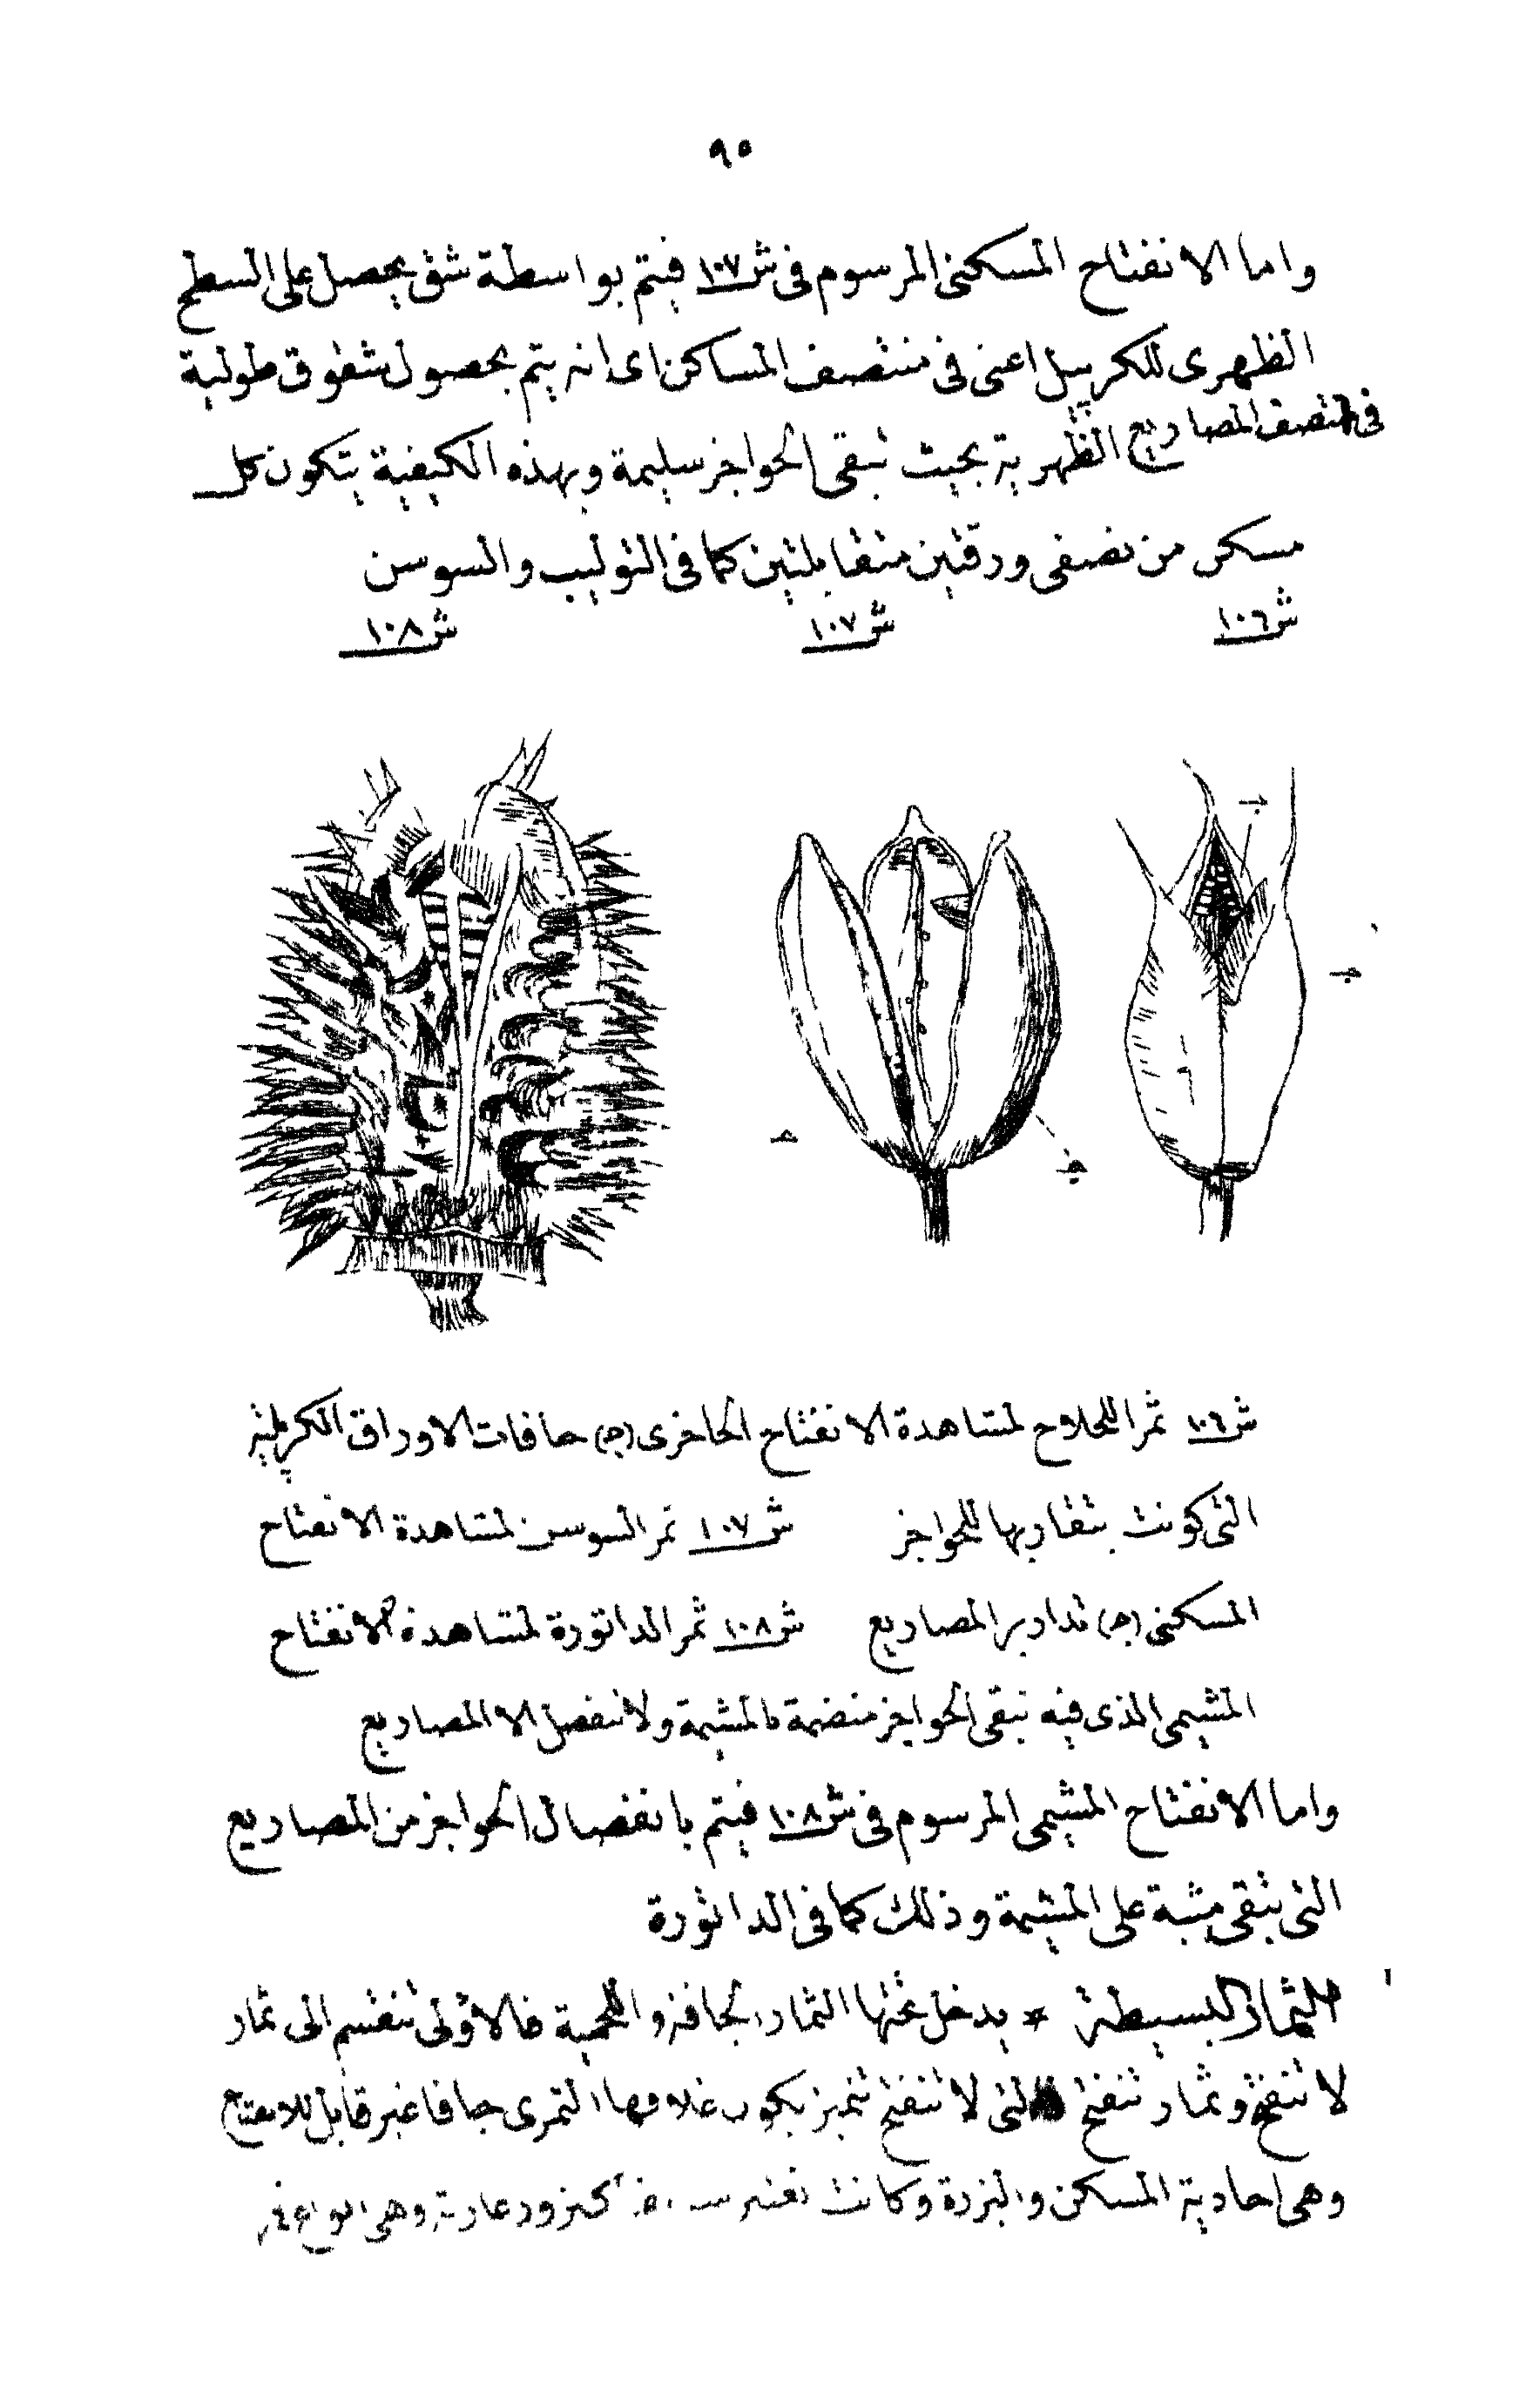 ٩٥
واما الانفتاح المسكنى المرسوم فى ش١٠٧ فيتم بواسطة شق يحصل على السطح
الظهرى للكربيل اعنى فى منتصف المساكن اى انه يتم بحصول شقوق طولية
فى منتصف المصاريع الظهرية بحيث تبقى الحواجز سليمة وبهذه الكيفية يتكون كل
مسكن من نصفى ورقتين متقابلتين كما فى التوليب والسوسن
ش١٠٦ ش١٠٧ ش١٠٨
ش١٠٦ ثمر اللحلاح لمشاهدة الانفتاح الحاجزى (ج) حافات الاوراق الكربلية
التى كونت بتقاربها للحواجز ش١٠٧ ثمر السوسن لمشاهدة الانفتاح
المسكنى (ج) تداريز المصاريع ش١٠٨ ثمر الداتورة لمشاهدة الانفتاح
المشيمى الذى فيه تبقى الحواجز منضمة بالمشيمة ولا تنفصل الا المصاريع
واما الانفتاح المشيمى المرسوم فى ش١٠٨ فيتم بانفصال الحواجز من المصاريع
التى تبقى مثبتة على المشيمة وذلك كما فى الداتورة
الثمار البسيطة * يدخل تحتها الثمار الجافة واللحمية فالاولى تنقسم الى ثمار
لا تنفتح وثمار تنفتح فالتى لا تنفتح تتميز بكون غلافها الثمرى جافا غير قابل للانفتاح
وهى احادية المسكن والبزرة وكانت تعتبر كبزور عارية وهى انواع